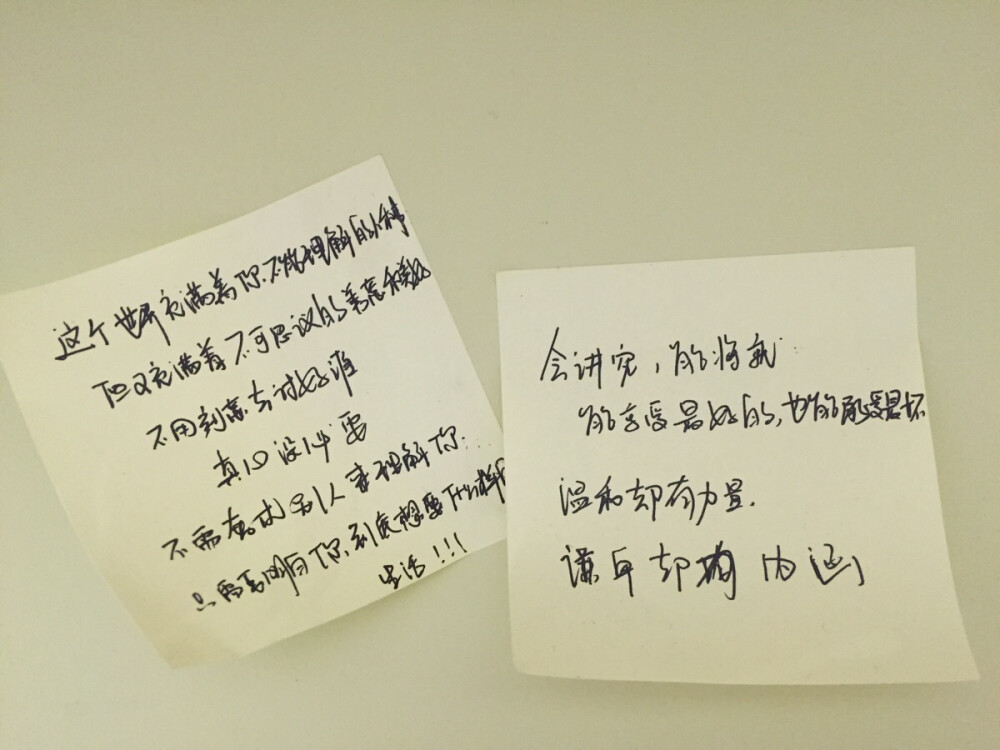 这个世界充满着你不能理解的事情
但又充满着不可思议的美意和美好
不用刻意去讨好谁
真心没必要
不需要求别人来理解你
只需要明白你到底想要什么样的
生活!!!
会讲究,能将就
能享受最好的,也能承受最坏
温和却有力量.
谦卑却有内涵